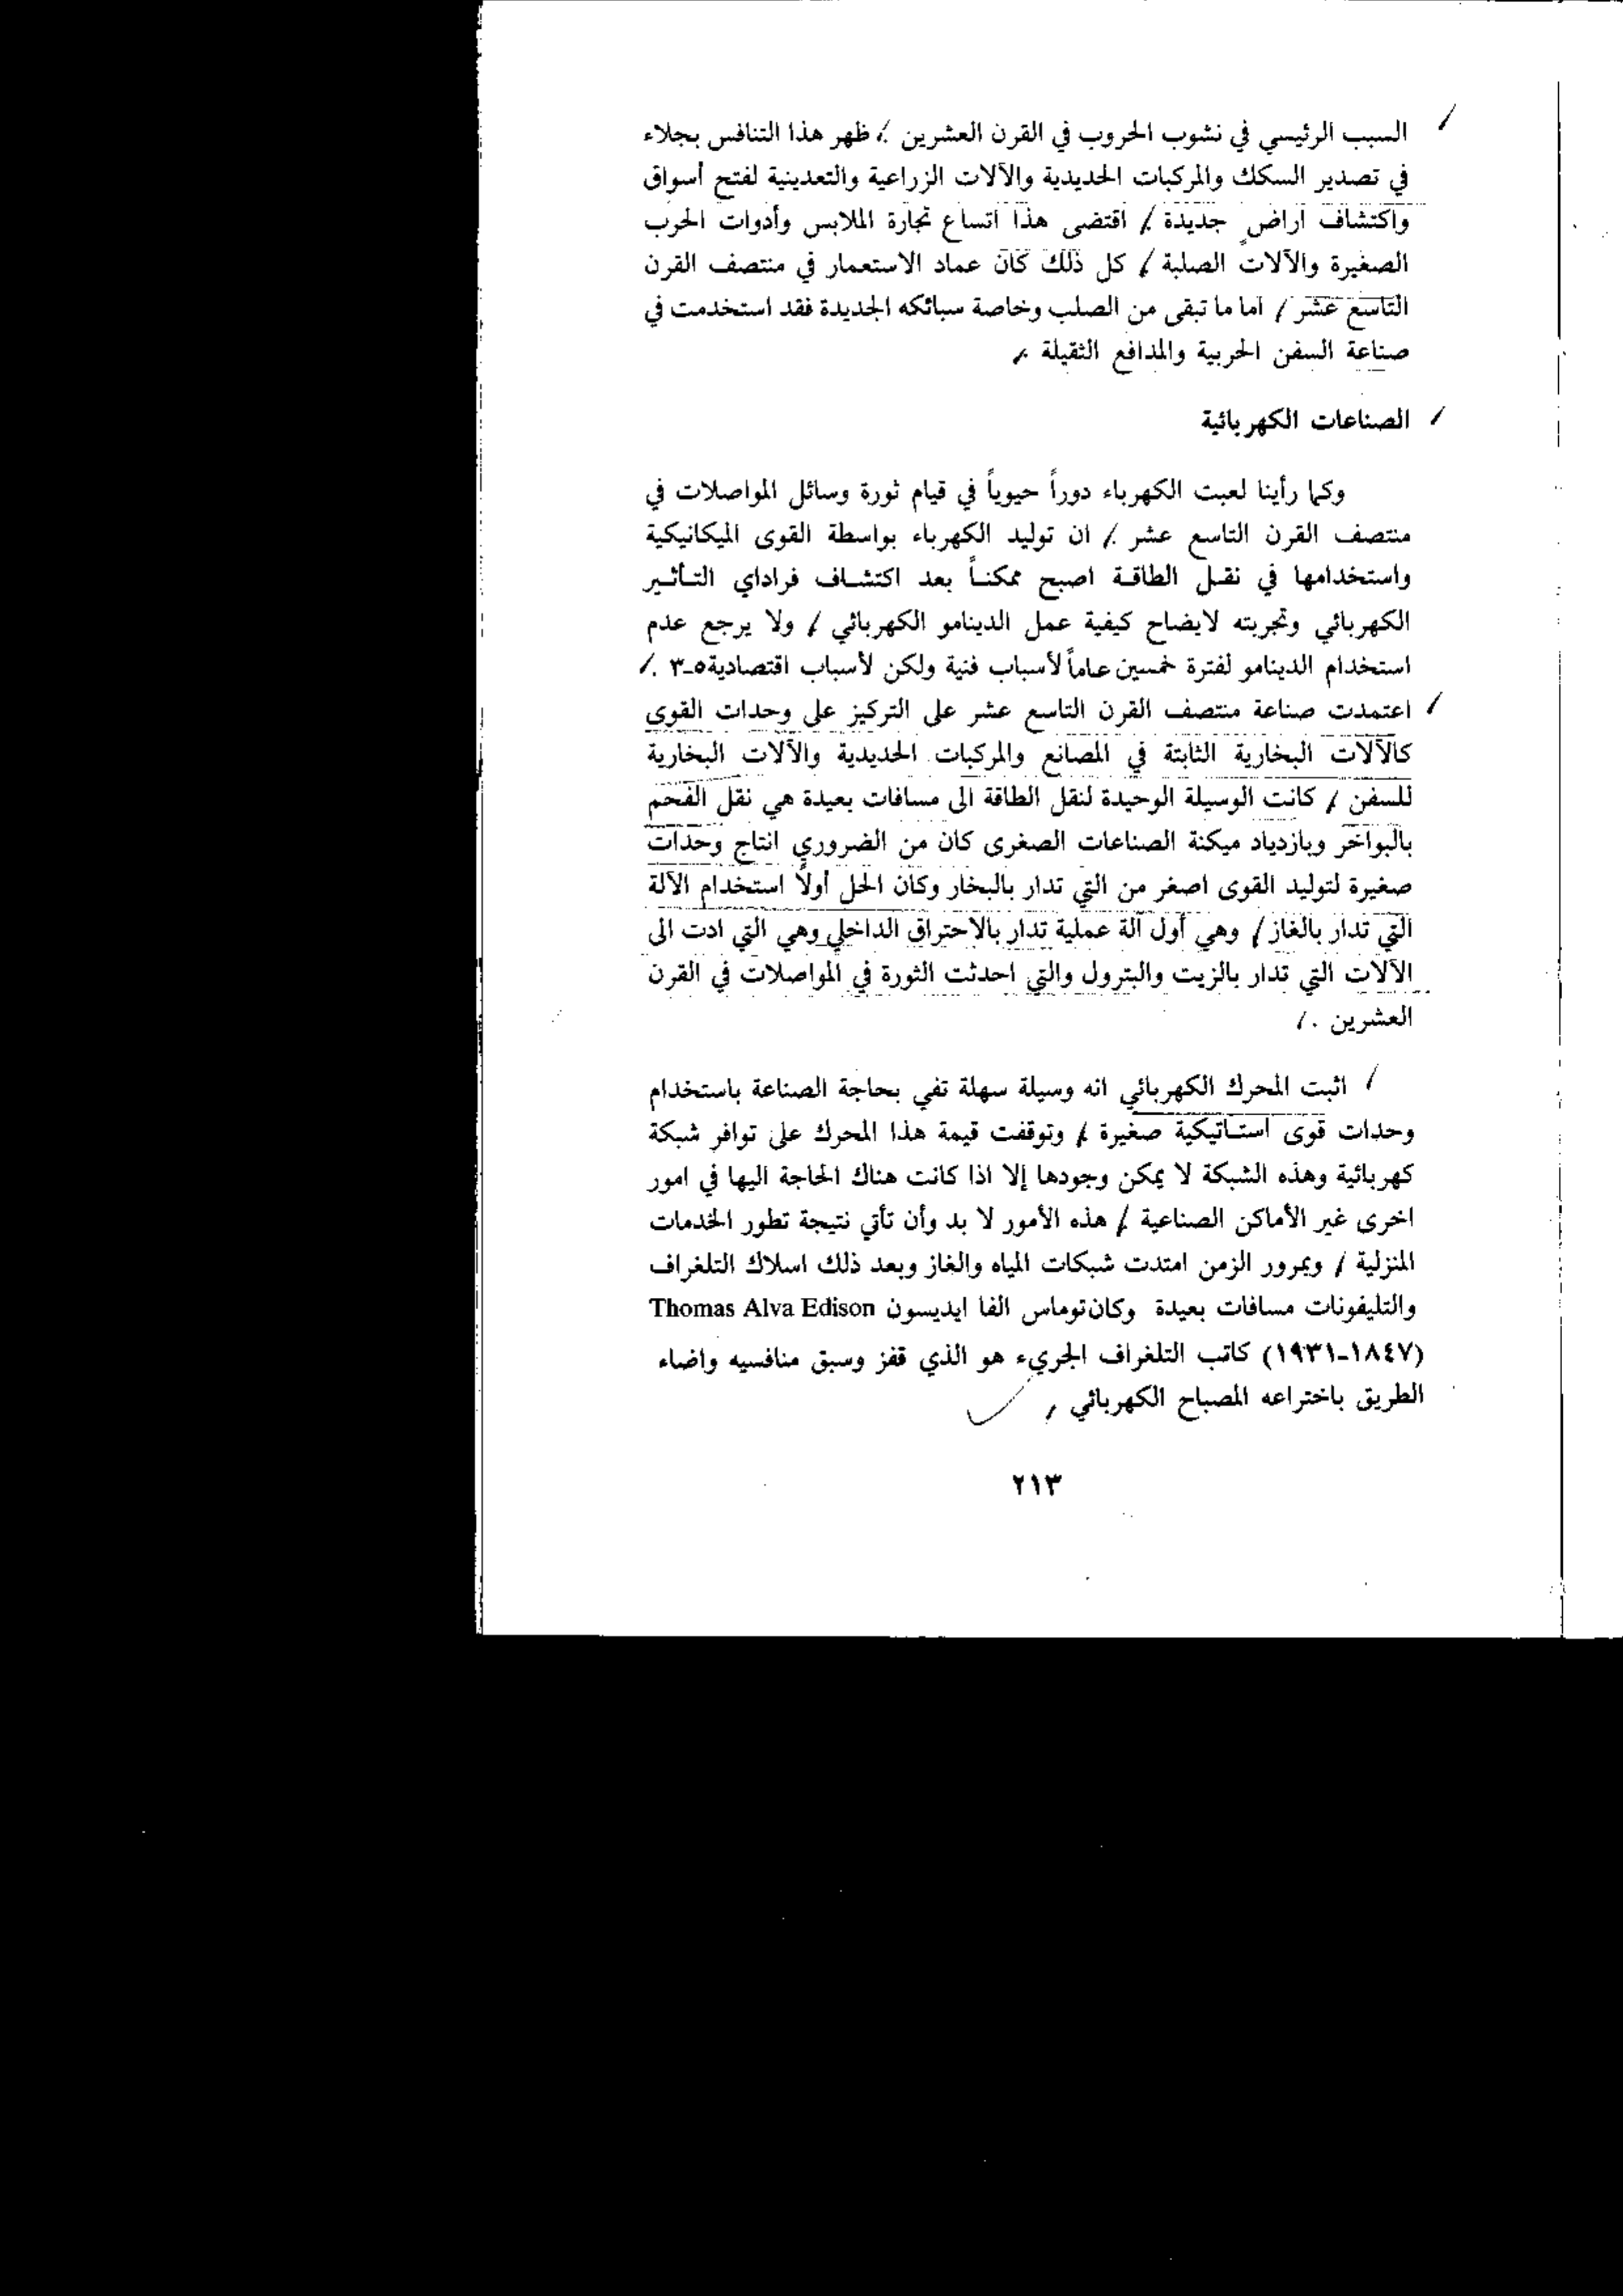 السبب الرئيسي في نشوب الحروب في القرن العشرين . ظهر هذا التنافس بجلاء
في تصدير السكك والمركبات الحديدية والآلات الزراعية والتعدينية لفتح أسواق
واكتشاف اراضٍ جديدة . اقتضى هذا اتساع تجارة الملابس وأدوات الحرب
الصغيرة والآلات الصلبة . كل ذلك كان عماد الاستعمار في منتصف القرن
التاسع عشر . اما ما تبقى من الصلب وخاصة سبائكه الجديدة فقد استخدمت في
صناعة السفن الحربية والمدافع الثقيلة .
الصناعات الكهربائية
وكما رأينا لعبت الكهرباء دوراً حيوياً في قيام ثورة وسائل المواصلات في
منتصف القرن التاسع عشر . ان توليد الكهرباء بواسطة القوى الميكانيكية
واستخدامها في نقل الطاقة اصبح ممكناً بعد اكتشاف فراداي التأثير
الكهربائي وتجربته لايضاح كيفية عمل الدينامو الكهربائي . ولا يرجع عدم
استخدام الدينامو لفترة خمسين عاماً لأسباب فنية ولكن لأسباب اقتصادية٥-٣ .
اعتمدت صناعة منتصف القرن التاسع عشر على التركيز على وحدات القوى
كالآلات البخارية الثابتة في المصانع والمركبات الحديدية والآلات البخارية
للسفن . كانت الوسيلة الوحيدة لنقل الطاقة الى مسافات بعيدة هي نقل الفحم
بالبواخر وبازدياد ميكنة الصناعات الصغرى كان من الضروري انتاج وحدات
صغيرة لتوليد القوى اصغر من التي تدار بالبخار وكان الحل أولاً استخدام الآلة
التي تدار بالغاز . وهي أول آلة عملية تدار بالاحتراق الداخلي وهي التي ادت الى
الآلات التي تدار بالزيت والبترول والتي احدثت الثورة في المواصلات في القرن
العشرين .
اثبت المحرك الكهربائي انه وسيلة سهلة تفي بحاجة الصناعة باستخدام
وحدات قوى استاتيكية صغيرة . وتوقفت قيمة هذا المحرك على توافر شبكة
كهربائية وهذه الشبكة لا يمكن وجودها إلا اذا كانت هناك الحاجة اليها في امور
اخرى غير الأماكن الصناعية . هذه الأمور لا بد وأن تأتي نتيجة تطور الخدمات
المنزلية . وبمرور الزمن امتدت شبكات المياه والغاز وبعد ذلك اسلاك التلغراف
والتليفونات مسافات بعيدة وكان توماس الفا ايديسون Thomas Alva Edison
(١٨٤٧-١٩٣١) كاتب التلغراف الجريء هو الذي قفز وسبق منافسيه واضاء
الطريق باختراعه المصباح الكهربائي .
٢١٣